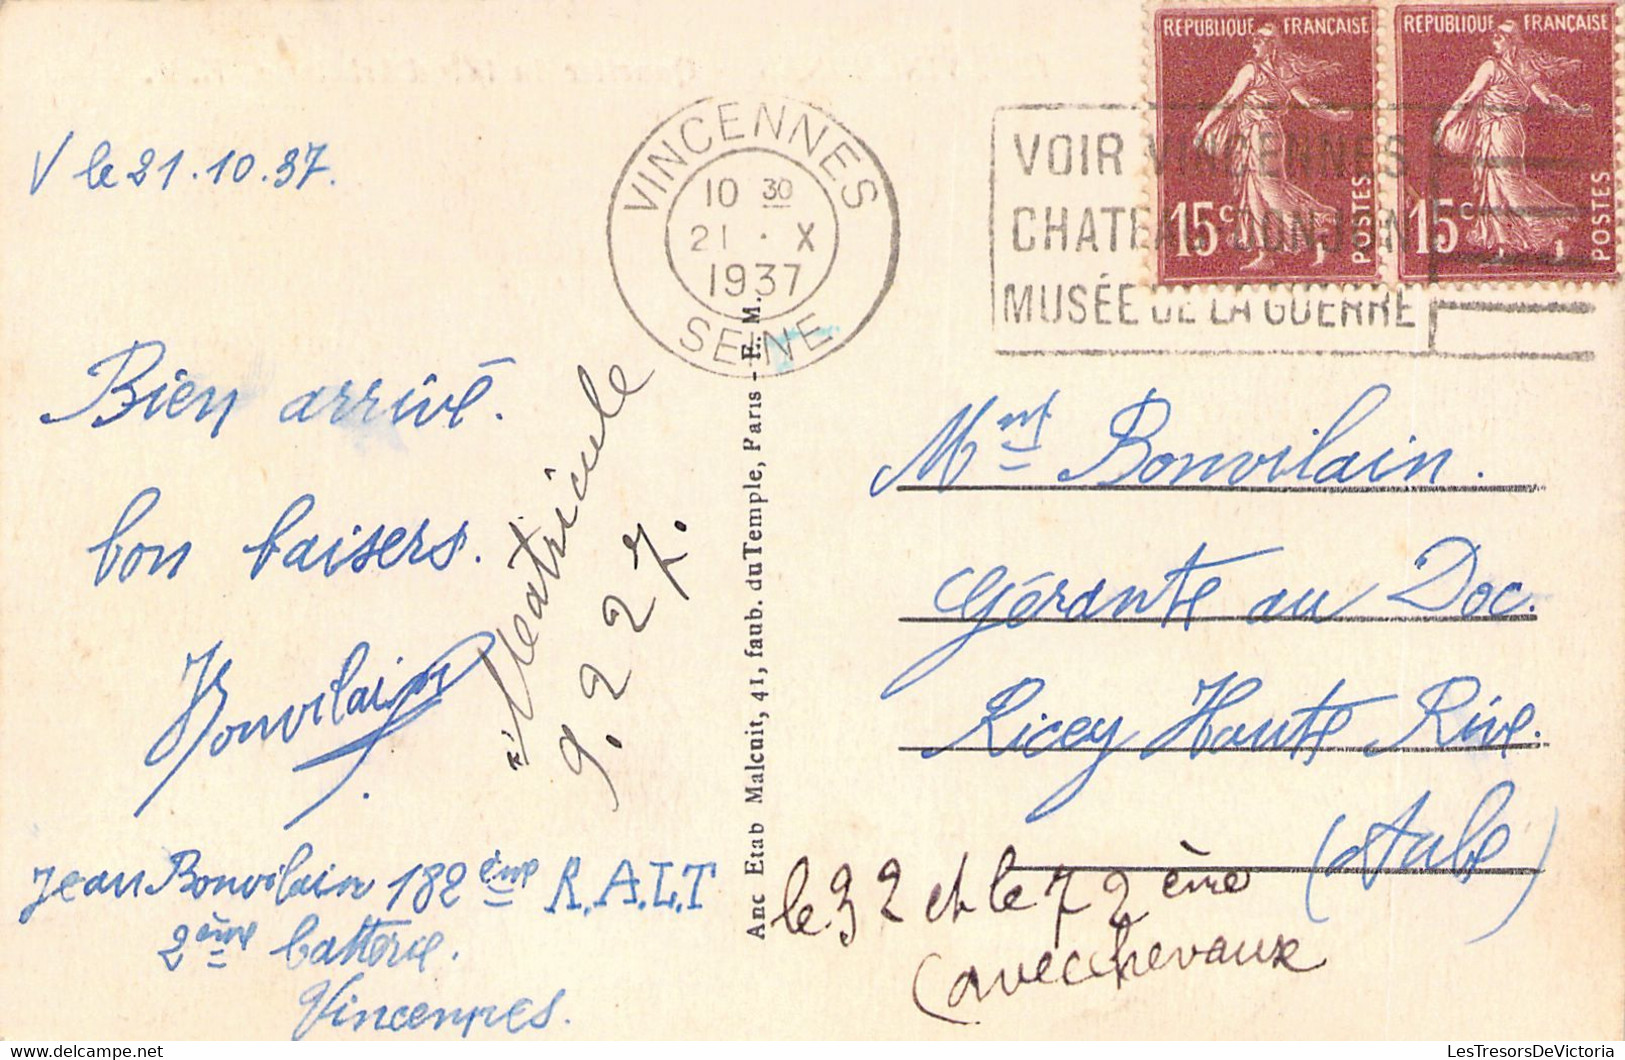 V le 21.10.37.
Bien arrivé.
bon baisers.
Bonvilain
Jean Bonvilain 182ème R.A.L.T
2ème batterie.
Vincennes.
Matricule
9.227.
VINCENNES
10 30
21 . X
1937
SEINE
VOIR VINCENNES
CHATEAU DONJON
MUSÉE DE LA GUERRE
REPUBLIQUE FRANÇAISE
15c POSTES
REPUBLIQUE FRANÇAISE
15c POSTES
Anc Etab Malcuit, 41, faub. du Temple, Paris - E. M.
Bonvilain.
Gérante au Doc.
Ricey Haute Rive.
(Aube)
le 32 et le 72ème
(avec chevaux
www.delcampe.net
LesTresorsDeVictoria